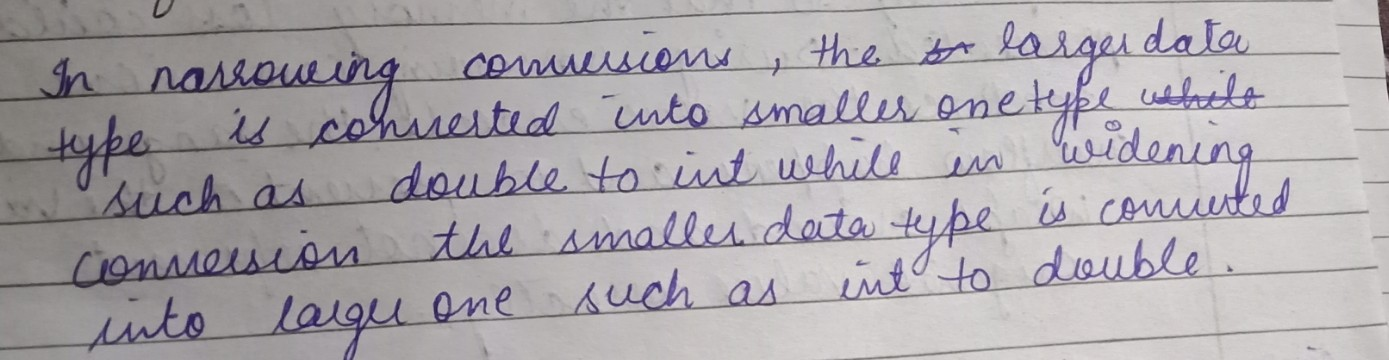 In narroweing conversions, the larger data
type is converted into smaller one type while
such as double to int while in widening
conversion the smaller data type is converted
into large one such as int to double.